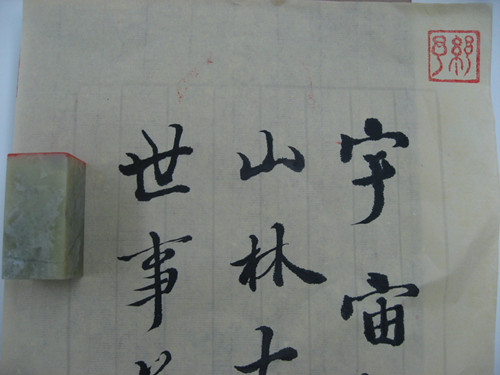 宇宙
山林
世事